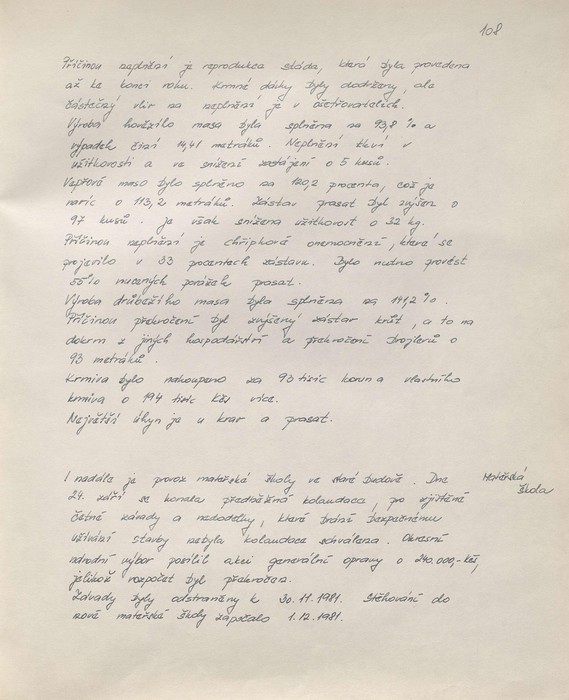 108
Příčinou neplnění je reprodukce stáda, která byla provedena
až ke konci roku. Krmné dávky byly dodrženy, ale
částečný vliv na neplnění je v ošetřovatelích.
Výroba hovězího masa byla splněna na 93,8 % a
výpadek činí 14,41 metráků. Neplnění tkví v
užitkovosti a ve snížení zástavu o 5 kusů.
Vepřové maso bylo splněno na 120,2 procenta, což je
navíc o 113,2 metráků. Zástav prasat byl zvýšen o
97 kusů. je však snížena užitkovost o 32 kg.
Příčinou neplnění je chřipková onemocnění, které se
projevilo v 33 procentech zástavu. Bylo nutno provést
55% nucených porážek prasat.
Výroba drůbežího masa byla splněna na 141,2 %.
Příčinou překročení byl zvýšený zástav krůt, a to na
dokrm z jiných hospodářství a překročení brojlerů o
93 metráků.
Krmiva bylo nakoupeno za 93 tisíc korun a vlastního
krmiva o 194 tisíc Kčs více.
Největší úhyn je u krav a prasat.
I nadále je provoz mateřské školy ve staré budově. Dne
Mateřská
škola
24. září se konala předběžná kolaudace, po zjištěné
četné závady a nedodělky, které brání bezpečnému
užívání stavby nebyla kolaudace schválena. Okresní
národní výbor posílil akci generální opravy o 240.000,-Kčs,
jelikož rozpočet byl překročen.
Závady byly odstraněny k 30.11.1981. Stěhování do
nové mateřské školy započalo 1.12.1981.